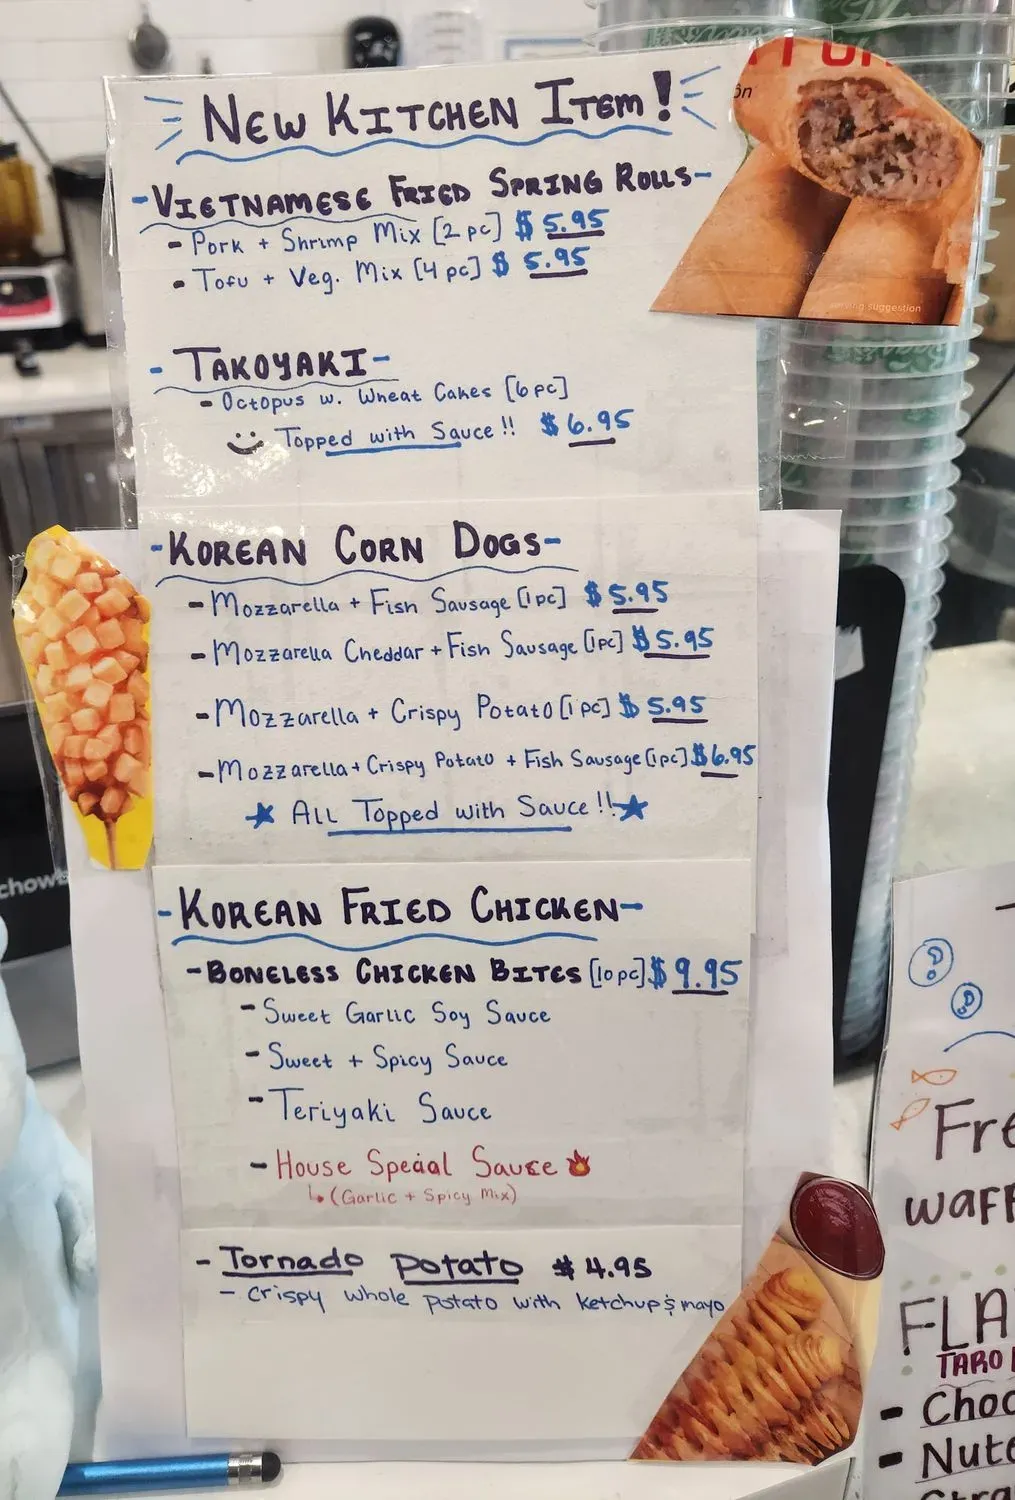 New Kitchen Item!
-Vietnamese Fried Spring Rolls-
- Pork + Shrimp Mix [2 pc] $ 5.95
- Tofu + Veg. Mix [4 pc] $ 5.95
- Takoyaki-
- Octopus w. Wheat Cakes [6 pc]
Topped with Sauce!! $ 6.95
-Korean Corn Dogs-
- Mozzarella + Fish Sausage [1pc] $ 5.95
- Mozzarella Cheddar + Fish Sausage [1pc] $ 5.95
- Mozzarella + Crispy Potato [1 pc] $ 5.95
- Mozzarella + Crispy Potato + Fish Sausage [1pc] $6.95
All Topped with Sauce!!
-Korean Fried Chicken-
-Boneless Chicken Bites [10 pc] $ 9.95
- Sweet Garlic Soy Sauce
- Sweet + Spicy Sauce
- Teriyaki Sauce
- House Special Sauce
(Garlic + Spicy Mix)
- Tornado Potato $ 4.95
- crispy whole potato with ketchup & mayo
serving suggestion
chow
Fre
waff
FLA
TARO
- Choc
- Nute
Stra